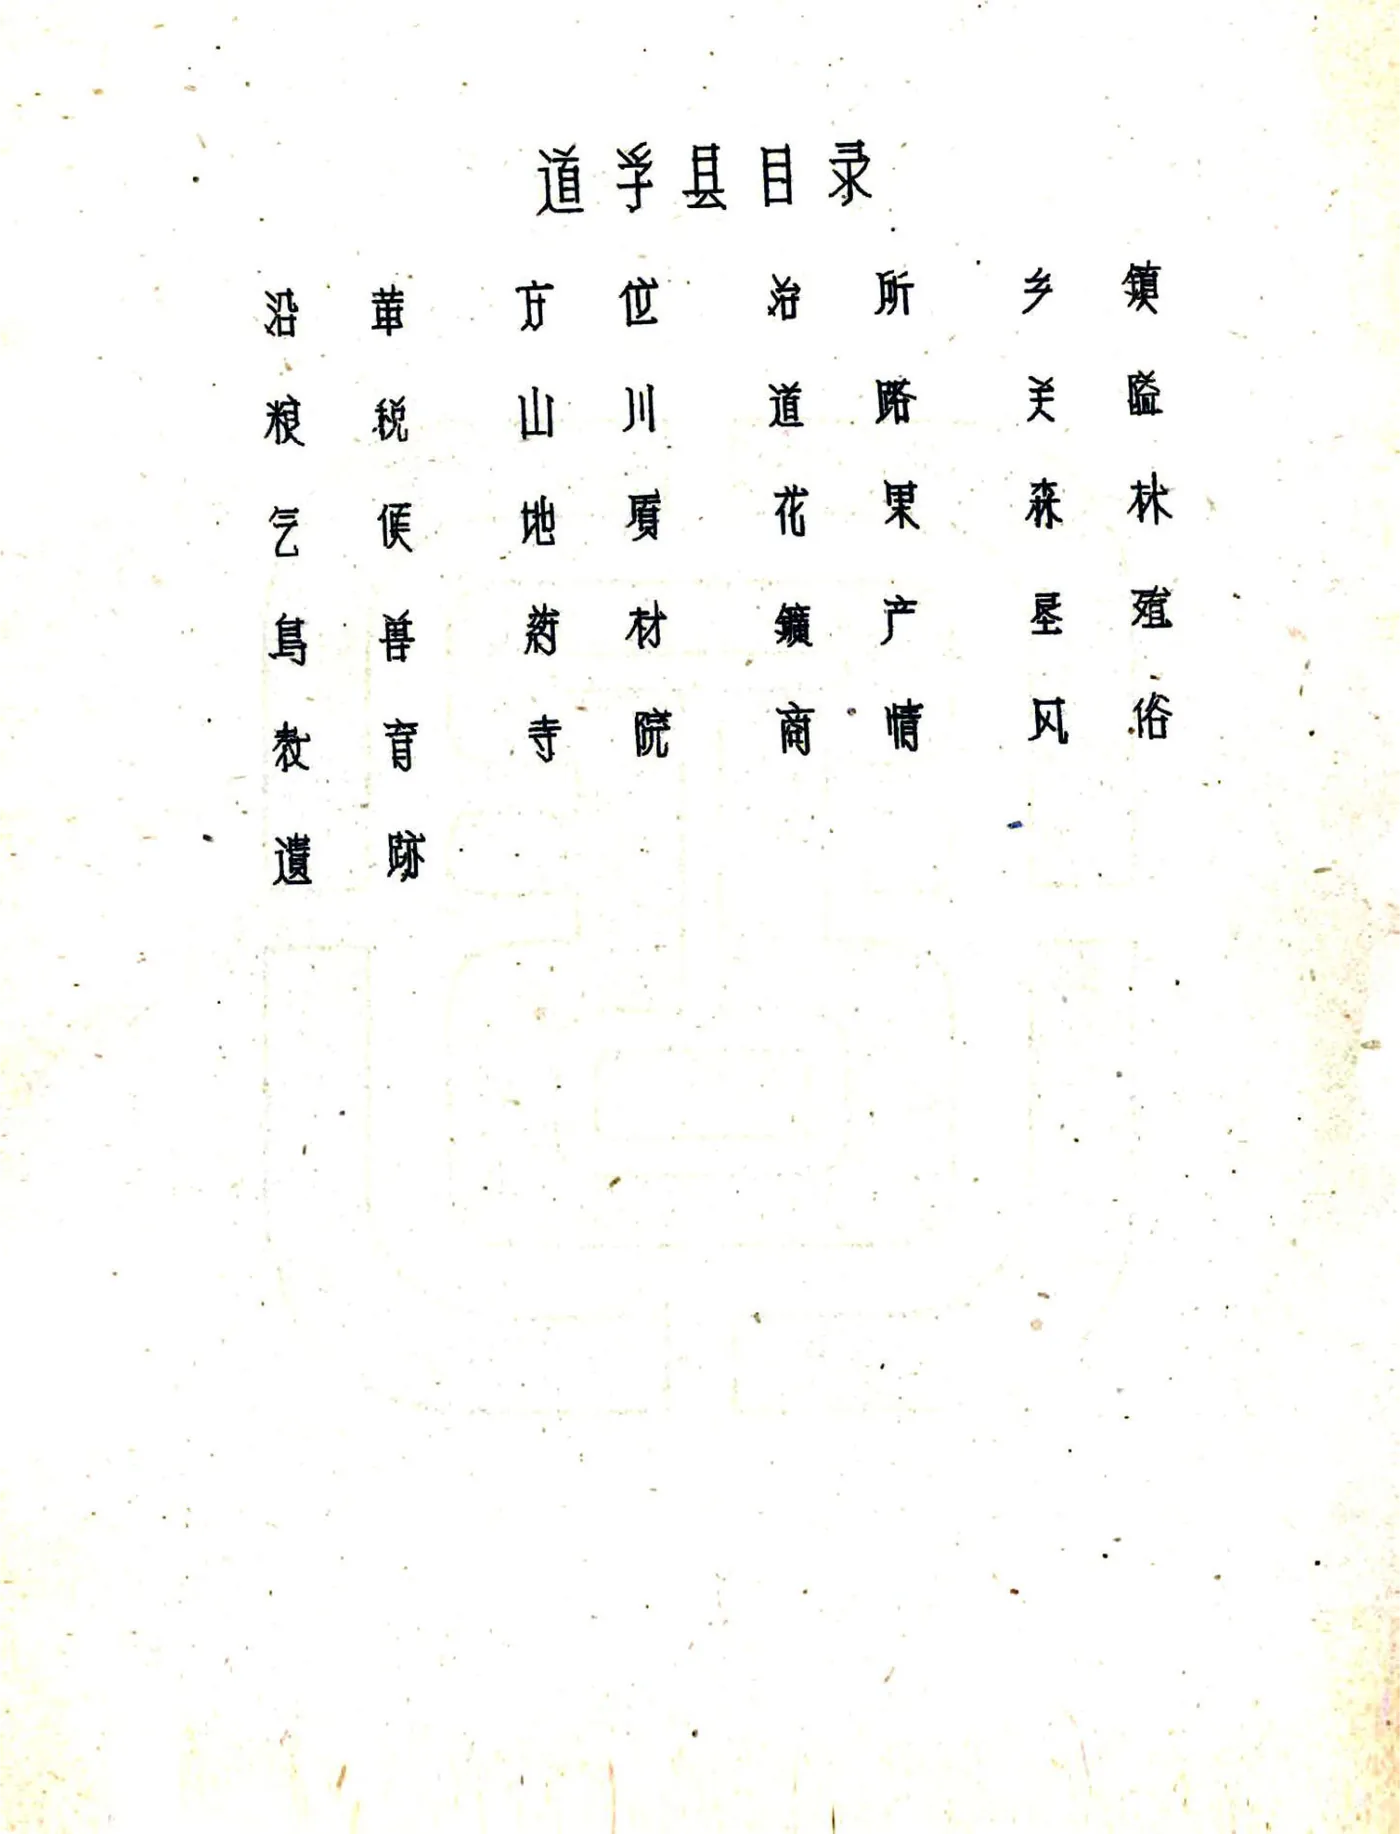 道孚县目录
沿革 方位 治所 乡镇
粮税 山川 道路 关隘
气候 地质 花果 森林
鳥兽 药材 鑛产 垦殖
教育 寺院 商情 风俗
遗跡